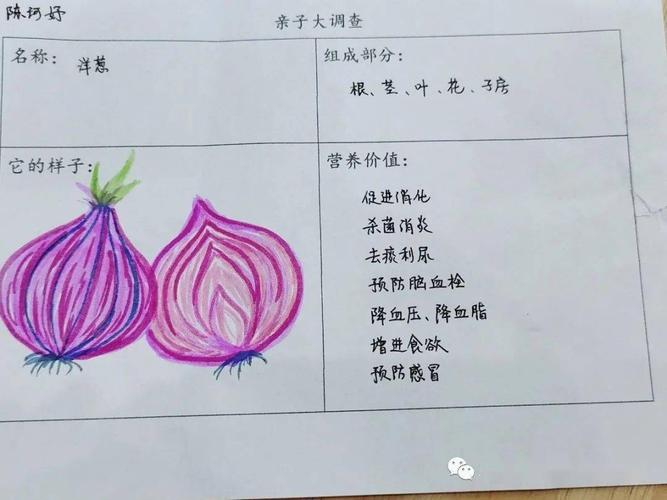 陈珂妤
亲子大调查
名称：洋葱
组成部分：
根、茎、叶、花、子房
它的样子：
营养价值：
促进消化
杀菌消炎
去痰利尿
预防脑血栓
降血压、降血脂
增进食欲
预防感冒